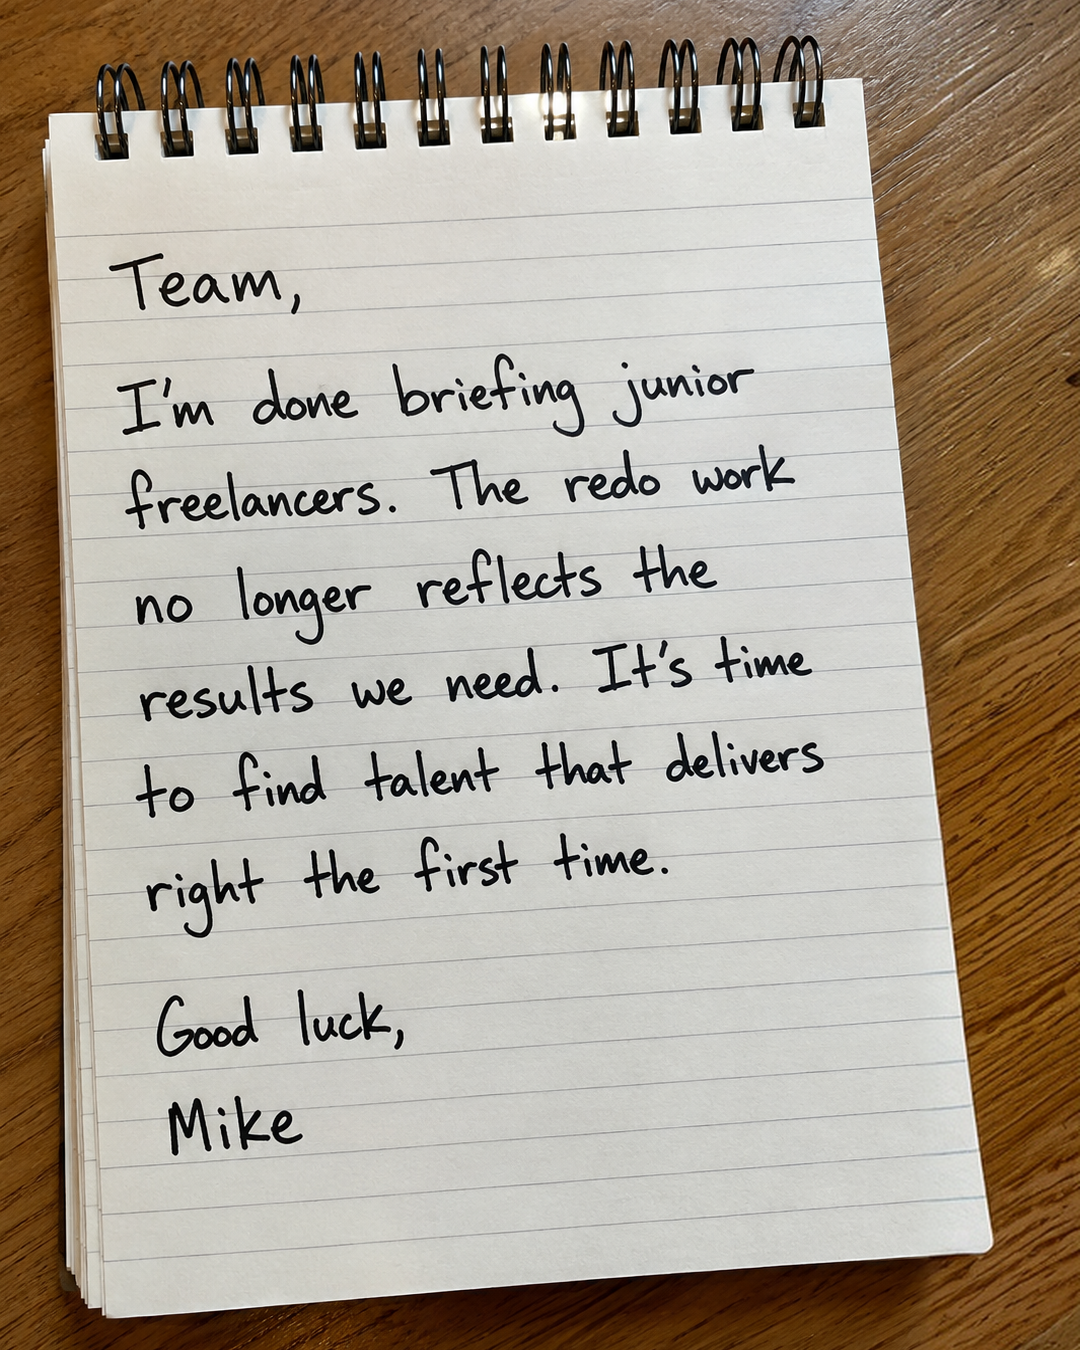 Team,
I'm done briefing junior
freelancers. The redo work
no longer reflects the
results we need. It's time
to find talent that delivers
right the first time.
Good luck,
Mike